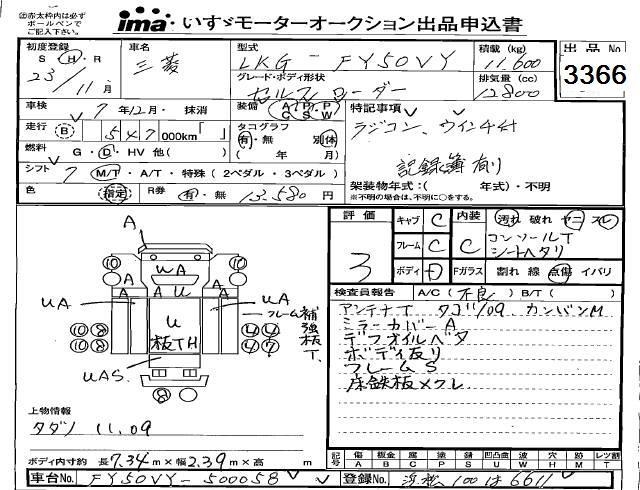 ②赤太枠内は必ず
ボールペンで
ご記入下さい。
ima いすゞモーターオークション出品申込書
初度登録 車名 型式 積載 (kg) 出品No
S・H・R 23年11月 三菱 LKG-FY50VY 11,600 3366
グレード・ボディ形状 排気量 (cc)
セルフローダー 12800
車検 7年12月・抹消 装備 A/C P/S P/W 特記事項
走行 B 547 000km「 」 タコグラフ 有・無 別体 ラジコン、ウインチ付
燃料 G・D・HV 他( ) ( 年 月) 記録簿有り
シフト 7 M/T・A/T・特殊(2ペダル・3ペダル) 架装物年式:( 年式)・不明
色 指定 R券 有・無 13,580円 ※不明の場合は、不明に○をする。
評価 3
キャブ C 内装 C 汚れ 破れ ヤニ スレ
フレーム C コンソールT
シートヘタリ
ボディ D Fガラス 割れ 線 点傷 イバリ
検査員報告 A/C(不良) B/T( )
アンテナT タダノ09 カンバンM
ミラーカバーA
デフオイルベタ
ボディ反り
フレームS
床鉄板メクレ
A
UA
A A U A
UA U UA
板TH
フレーム補強板T
UAS
⑩⑧ ④④
⑩⑧ ④⑦
⑧
上物情報
タダノ 11.09
ボディ内寸約 長7.34m×幅2.39m×高 m
記号 傷A 板金B 腐C 塗P 錆S 凹凸U 波W 穴H 曲M レツ割T
車台No. FY50VY-500058 登録No. 浜松100は6611